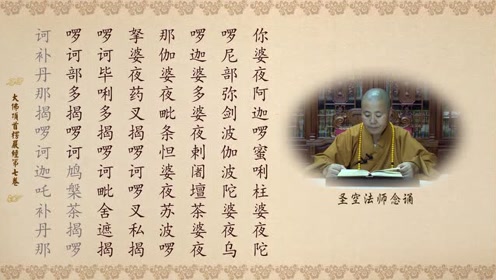 你婆夜阿迦啰蜜唎柱婆夜陀
啰尼部弥剑波伽波陀婆夜乌
啰迦婆多婆夜剌阇壇茶婆夜
那伽婆夜毗条怛婆夜苏波啰
拏婆夜药叉揭啰诃啰叉私揭
啰诃毕唎多揭啰诃毗舍遮揭
啰诃部多揭啰诃鸠槃茶揭啰
诃补丹那揭啰诃迦吒补丹那
大佛頂首楞嚴經第七卷
圣空法师念诵